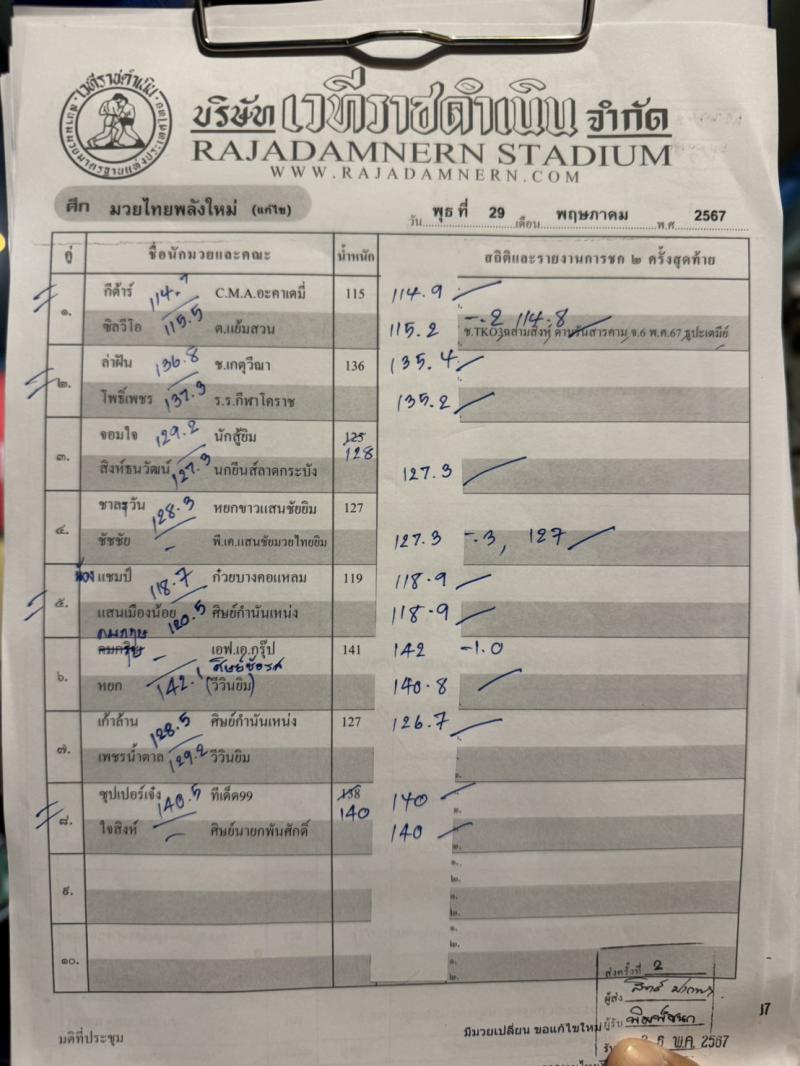 เวทีราชดำเนิน
บริษัท เวทีราชดำเนิน จำกัด
RAJADAMNERN STADIUM
WWW.RAJADAMNERN.COM
ศึก มวยไทยพลังใหม่ (แก้ไข)
วัน พุธ ที่ 29 เดือน พฤษภาคม พ.ศ 2567
คู่ ชื่อนักมวยและคณะ น้ำหนัก สถิติและรายงานการชก ๒ ครั้งสุดท้าย
๑.
กีต้าร์ 114.9 C.M.A.อะคาเดมี่ 115 114.9
ซิลวีโอ 115.5 ต.แย้มสวน 115.2 -.2 114.8
๒.
ล่าฝัน 136.8 ช.เกตุวีณา 136 135.4
โพธิ์เพชร 137.3 ร.ร.กีฬาโคราช 135.2
๓.
จอมใจ 129.2 นักสู้ยิม 125 128
สิงห์ธนวัฒน์ 127.3 นกยีนส์ลาดกระบัง 127.3
๔.
ชาละวัน 128.3 หยกขาวแสนชัยยิม 127
ชัชชัย - พี.เค.แสนชัยมวยไทยยิม 127.3 -.3, 127
๕.
น้อง แชมป์ 118.7 ก๋วยบางคอแหลม 119 118.9
แสนเมืองน้อย 120.5 ศิษย์กำนันเหน่ง 118.9
๖.
คมกฤษ - เอฟ.เอ.กรุ๊ป 141 142 -1.0
หยก 142.1 (วีวินยิม) 140.8
๗.
เก้าล้าน 128.5 ศิษย์กำนันเหน่ง 127 126.7
เพชรน้ำตาล 129.2 วีวินยิม
๘.
ซุปเปอร์เจ๋ง 140.5 ทีเด็ด99 138 140 140
ใจสิงห์ - ศิษย์นายกพันศักดิ์ 140
๙.
๑๐.
มติที่ประชุม
มีมวยเปลี่ยน ขอแก้ไขใหม่
ส่งครั้งที่ 2
ผู้ส่ง
ผู้รับ พิมพ์ชนก
พ.ค. 2567